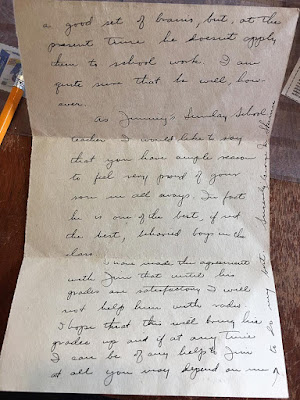 a good set of brains, but, at the
present time he doesn't apply
them to school work. I am
quite sure that he will, how-
ever.
As Jimmy's Sunday School
teacher I would like to say
that you have ample reason
to feel very proud of your
son in all ways. In fact
he is one of the best, if not
the best, behaved boys in the
class.
I have made the agreement
with Jim that until his
grades are satisfactory I will
not help him with radio.
I hope that this will bring his
grades up and if at any time
I can be of any help to Jim
at all you may depend on me
to do my best. Sincerely,